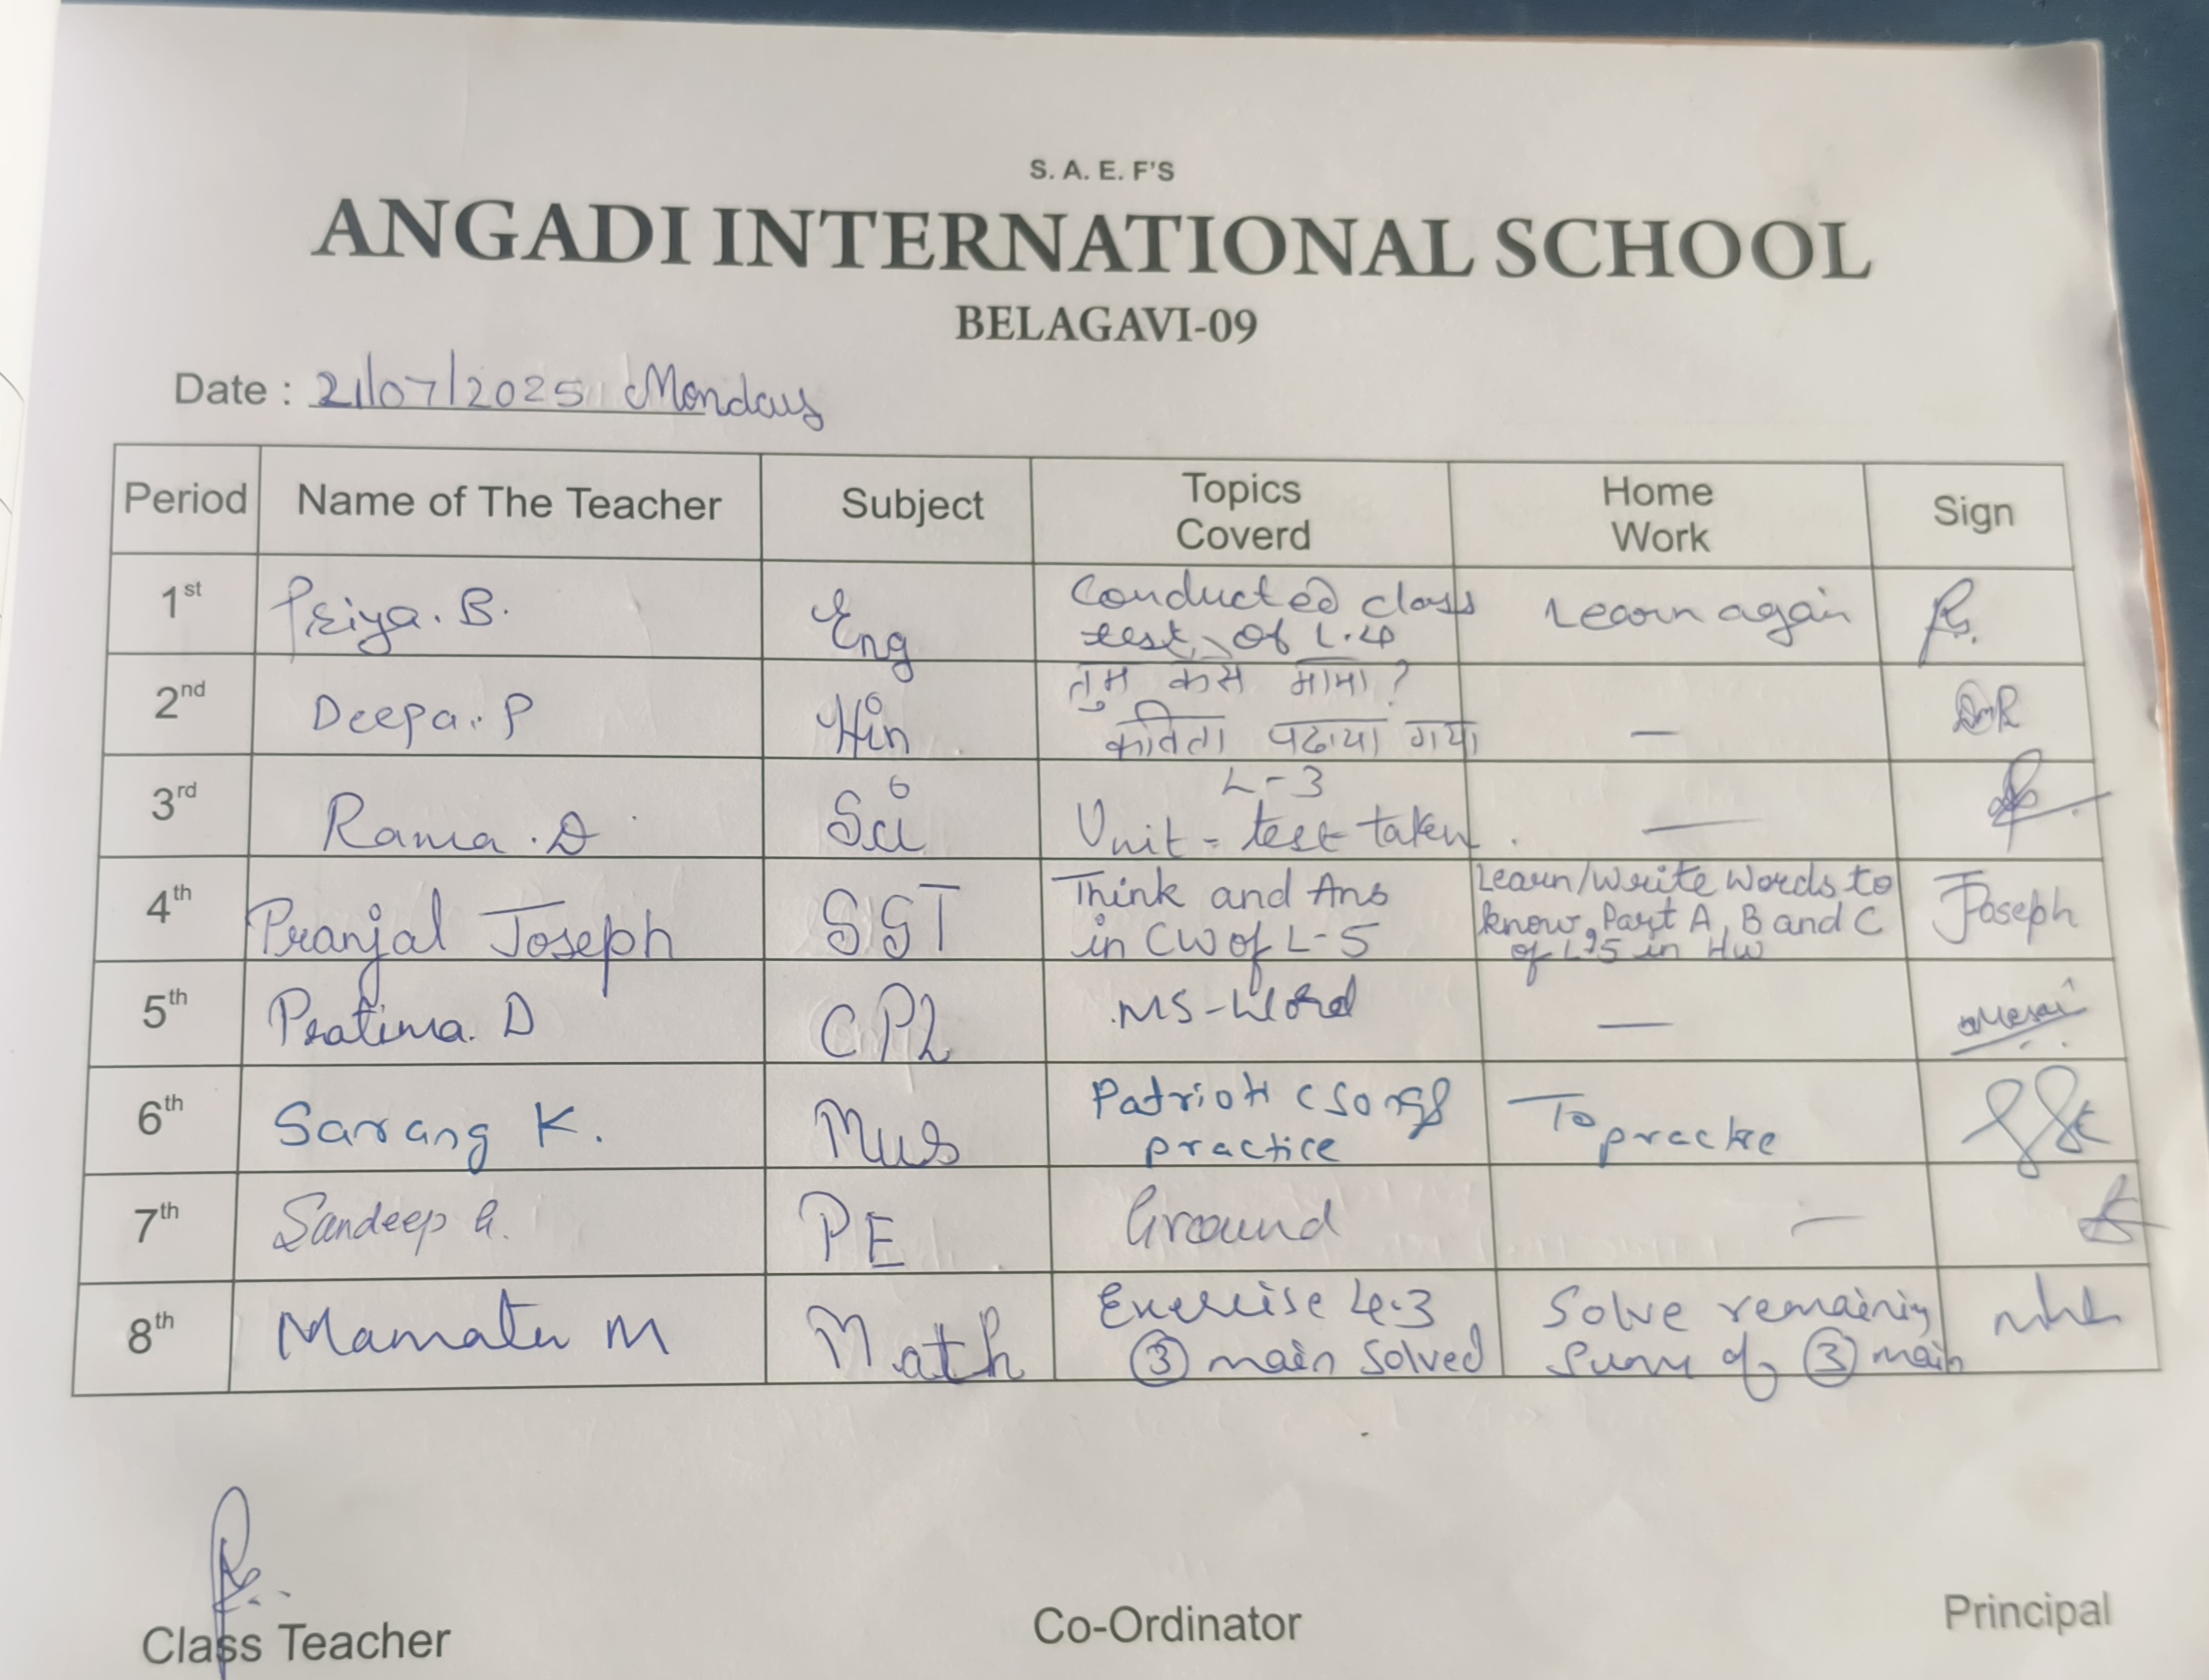 S. A. E. F'S
ANGADI INTERNATIONAL SCHOOL
BELAGAVI-09
Date : 21/07/2025 Monday
Period Name of The Teacher Subject Topics Coverd Home Work Sign
1st Priya. B. Eng Conducted class test of L.4 Learn again
2nd Deepa. P Hin तुम कैसे मामा? कविता पढाया गया —
3rd Rama. D Sci L-3 Unit - test taken. —
4th Pranjal Joseph SST Think and Ans in CW of L-5 Learn/Write Words to know, Part A, B and C of L-5 in HW Joseph
5th Pratima. D CPL MS-Word —
6th Sarang K. Mus Patriotic songs practice To practice
7th Sandeep G. PE Ground —
8th Mamata M Math Exercise 4.3 ③ main solved Solve remaining sum of ③ main
Class Teacher Co-Ordinator Principal